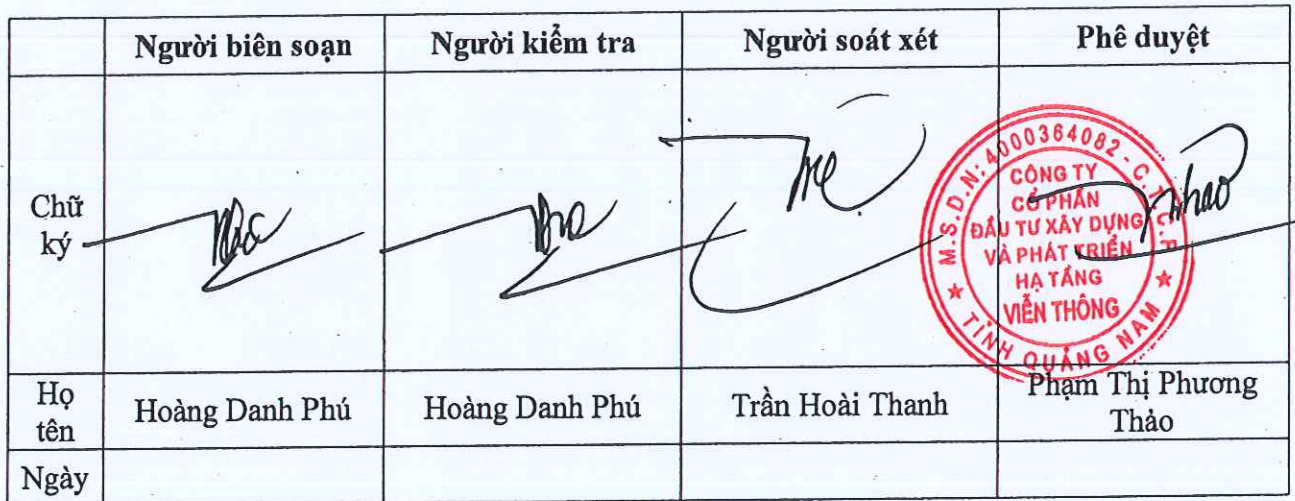 Người biên soạn Người kiểm tra Người soát xét Phê duyệt
Chữ
ký
M.S.D.N: 4000364082 - C.T.C.P
CÔNG TY
CỔ PHẦN
ĐẦU TƯ XÂY DỰNG
VÀ PHÁT TRIỂN
HẠ TẦNG
VIỄN THÔNG
TỈNH QUẢNG NAM
Họ
tên
Hoàng Danh Phú Hoàng Danh Phú Trần Hoài Thanh Phạm Thị Phương
Thảo
Ngày